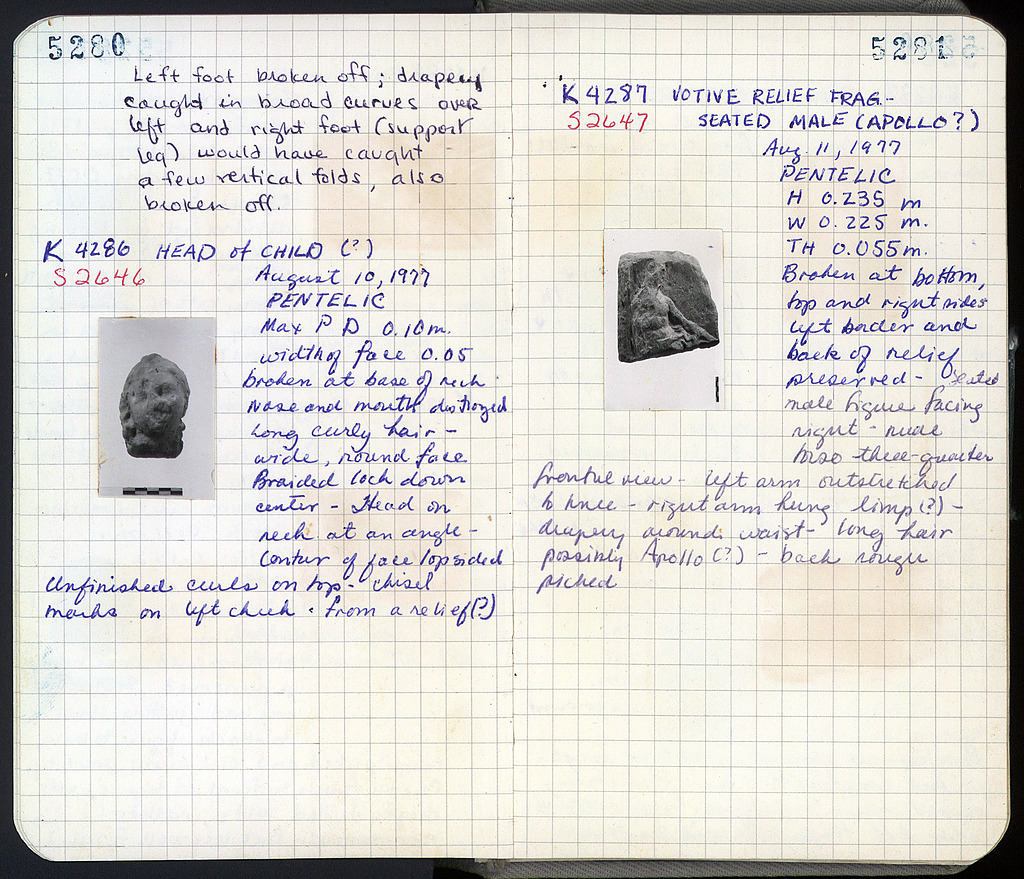 5280
Left foot broken off; drapery
caught in broad curves over
left and right foot (support
leg) would have caught
a few vertical folds, also
broken off.
K 4286 HEAD of CHILD (?)
S 2646
August 10, 1977
PENTELIC
Max P D 0.10m.
width of face 0.05
broken at base of neck
Nose and mouth destroyed
Long curly hair -
wide, round face
Braided lock down
center - Head on
neck at an angle -
Contur of face lopsided
Unfinished curls on top - chisel
marks on left cheek. From a relief(?)
5281
K 4287 VOTIVE RELIEF FRAG.-
S 2647 SEATED MALE (APOLLO?)
Aug. 11, 1977
PENTELIC
H 0.235 m
W 0.225 m.
TH 0.055m.
Broken at bottom,
top and right sides
left border and
back of relief
preserved - seated
male figure facing
right - nude
torso three-quarter
frontal view - left arm outstretched
to knee - right arm hung limp(?) -
drapery around waist - long hair
possibly Apollo (?) - back rough
picked